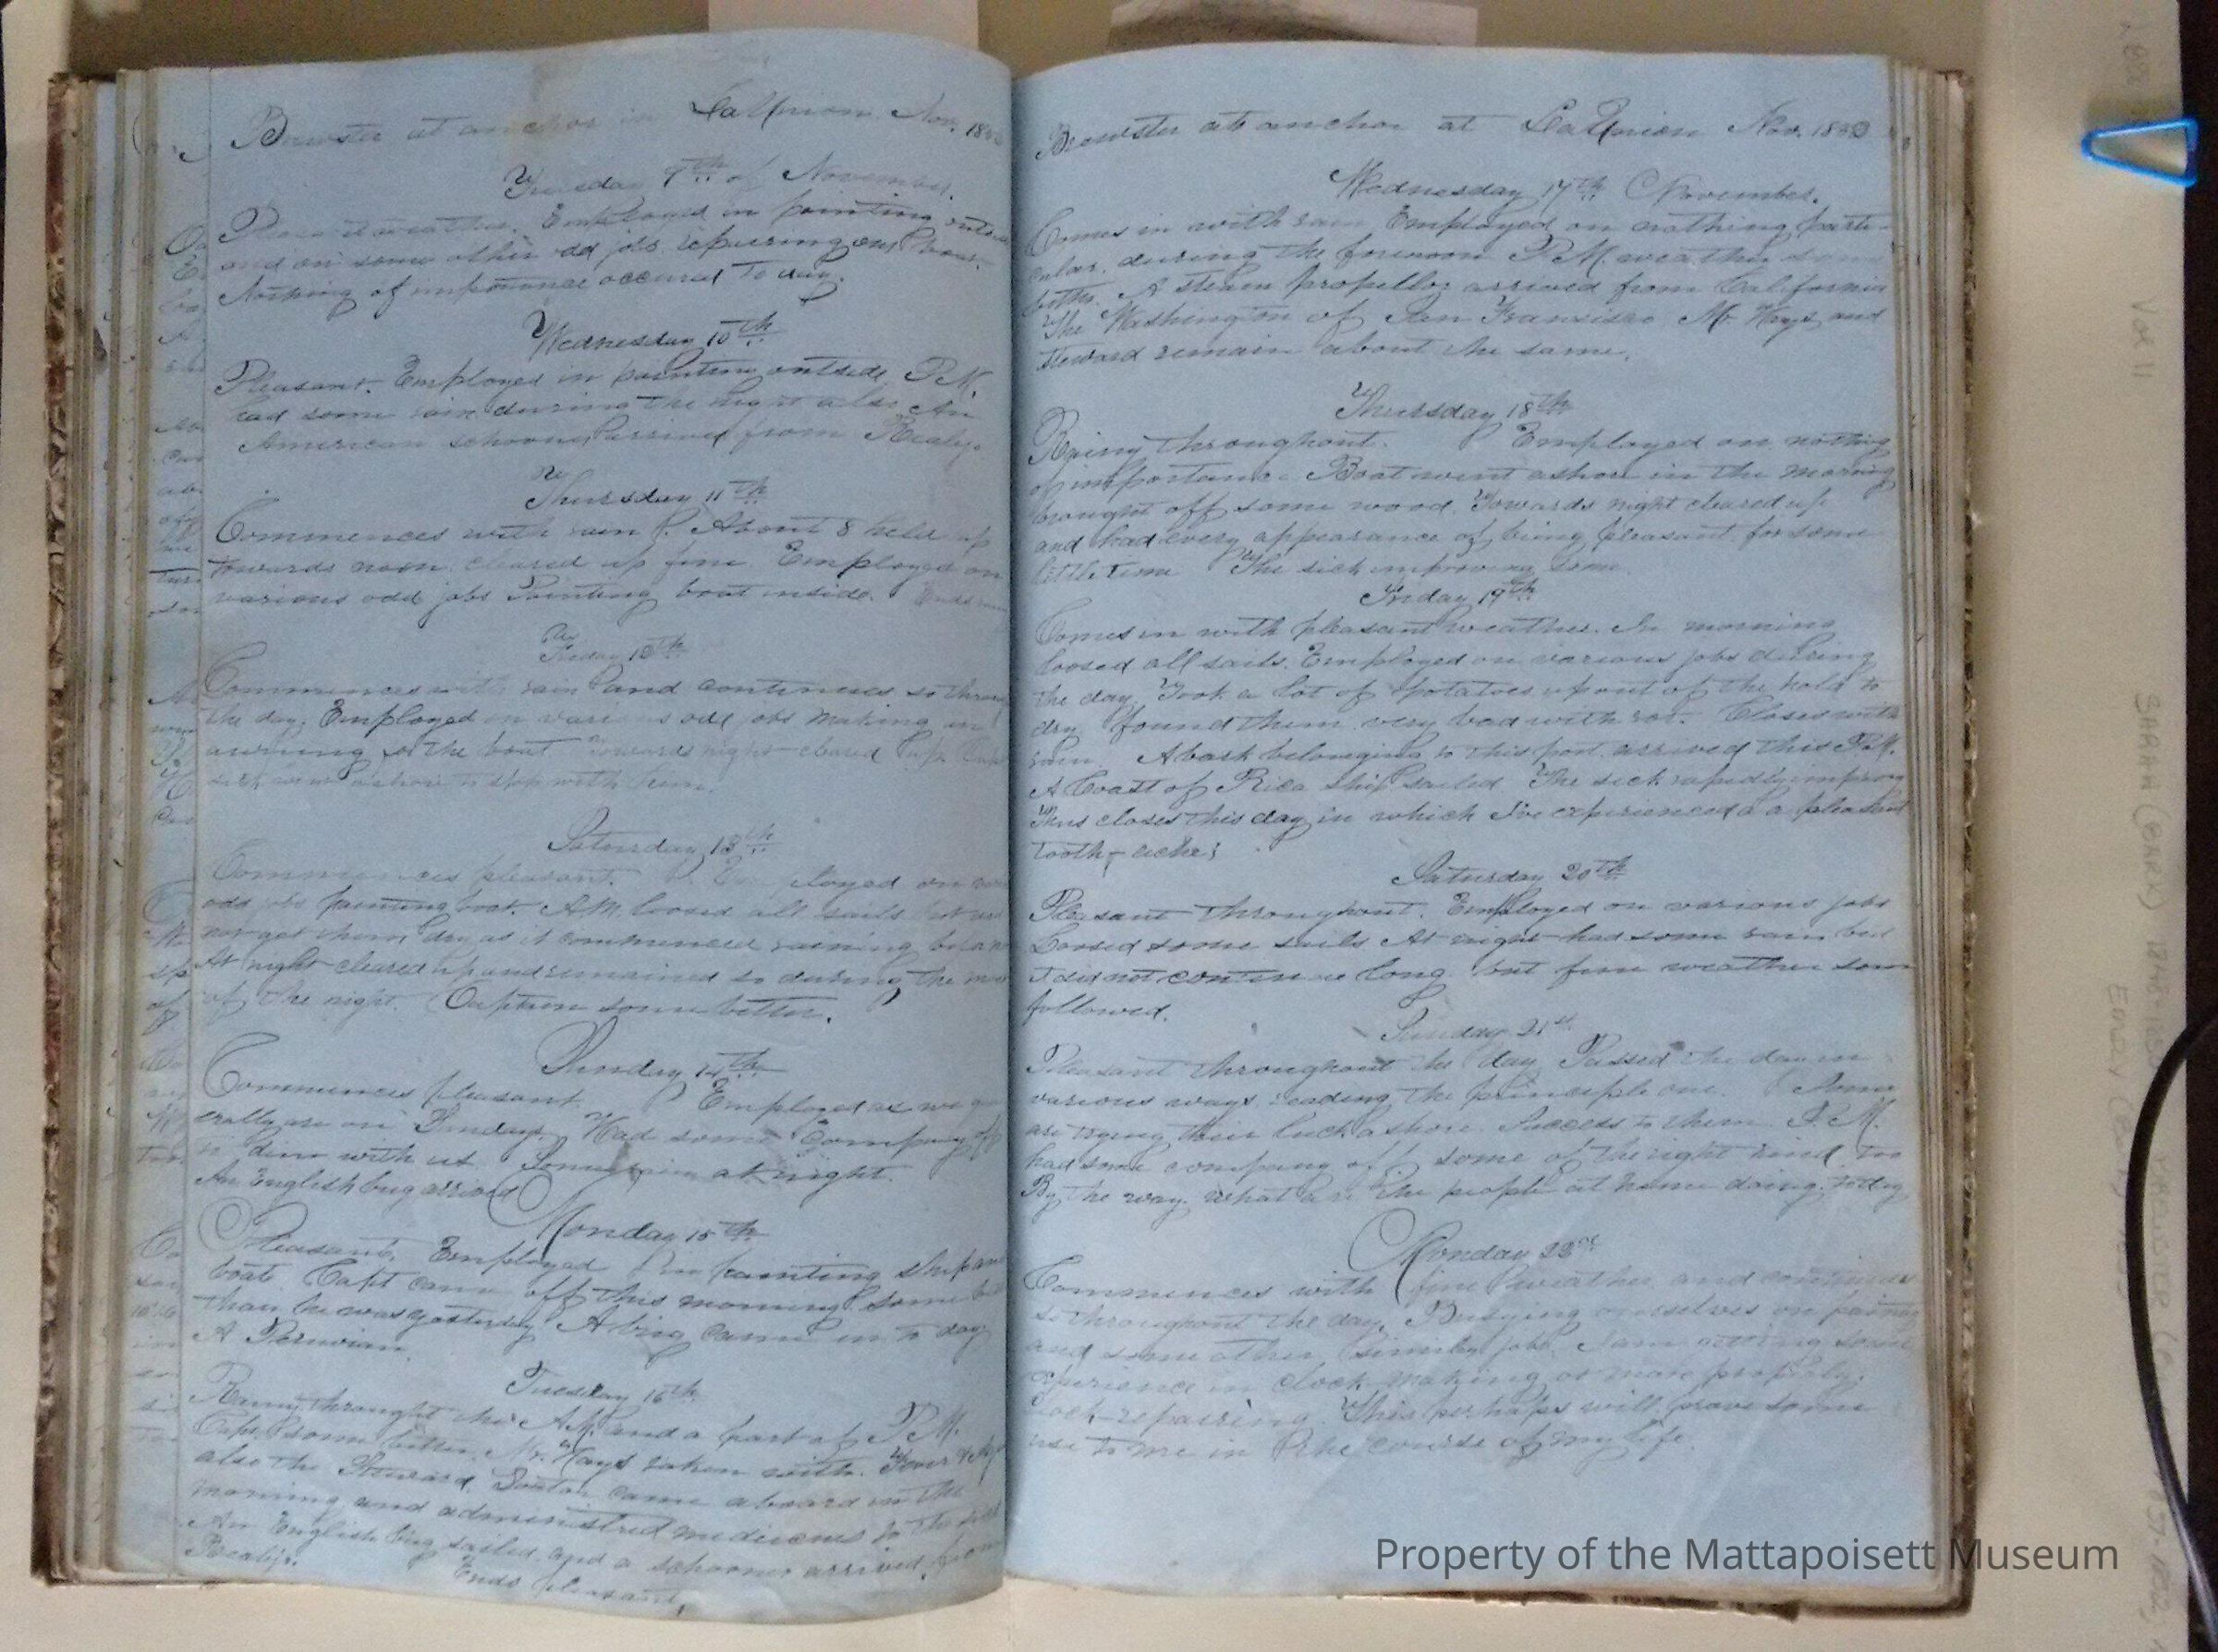 Brewster at anchor in La Union Nov. 185
Tuesday 9th of November.
weather. Employed in painting
and on some other odd jobs, repairing our boat.
Nothing of importance occured to day.
Wednesday 10th
Pleasant. Employed in painting outside. P.M.
had some rain during the night also. An
American schooner arrived from Realijo.
Thursday 11th
Commences with rain. About 8 held up
towards noon cleared up fine. Employed on
various odd jobs Painting boat inside. Ends
Friday 12th
Commences with rain and continues so through
the day. Employed on various odd jobs making an
awning for the boat towards night cleared up. Capt
sick went ashore to stop with him.
Saturday 13th
Commences pleasant. Employed on
odd jobs painting boat. A.M. loosed all sails but
not get them dry as it commenced raining before
At night cleared up and remained so during the
of the night. Captain some better.
Sunday 14th
Commences pleasant. Employed as we gen
erally are on Sundays. Had some company off
to dine with us. Some rain at night.
An English brig arrived
Monday 15th
Pleasant. Employed in painting ship and
boats. Capt came off this morning some
than he was yesterday. A brig came in to day
A Peruvian.
Tuesday 16th
Rainy throught the A.M. and a part of P.M.
Capt. some better. Mr. Hays taken with Fever &
also the Steward. Doctor came aboard in the
morning and administred medicines to the sick
An English brig sailed and a schooner arrived from
Realijo. Ends pleasant.
Brewster at anchor at La Union Nov. 185
Wednesday 17th November.
Comes in with rain Employed on nothing parti-
cular. during the forenoon P.M. weather
A steam propellor arrived from California
The Washington of San Fransisco. Mr. Hays and
steward remain about the same.
Thursday 18th
Rainy throughout. Employed on nothing
of importance. Boat went ashore in the morning
brought off some wood. Towards night cleared up
and had every appearance of being pleasant for some
little time The sick improving some.
Friday 19th
Comes in with pleasant weather. In morning
loosed all sails. Employed on various jobs during
the day. Took a lot of potatoes up out of the hold to
dry found them very bad with rot. Closes with
rain. A bark belonging to this port arrived this P.M.
A Coast of Rica ship sailed. The sick rapidly improving
Thus closes this day in which I've experienced a pleasant
tooth-ache;
Saturday 20th
Pleasant throughout. Employed on various jobs
Loosed some sails At night had some rain but
it did not continue long but fine weather soon
followed.
Sunday 21st
Pleasant throughout the day Passed the day in
various ways. reading the principle one Some
are trying their luck ashore. Success to them. P.M.
had some company off some of the right kind too
By the way. what are the people at home doing to day
Monday 22nd
Commences with fine weather and continues
so throughout the day. Busying ourselves on painting
and some other similar jobs. I am getting some
experience in clock making or more properly.
clock-repairing. This perhaps will prove some
use to me in the course of my life.
Property of the Mattapoisett Museum
VOL 11
SARAH (BARK)